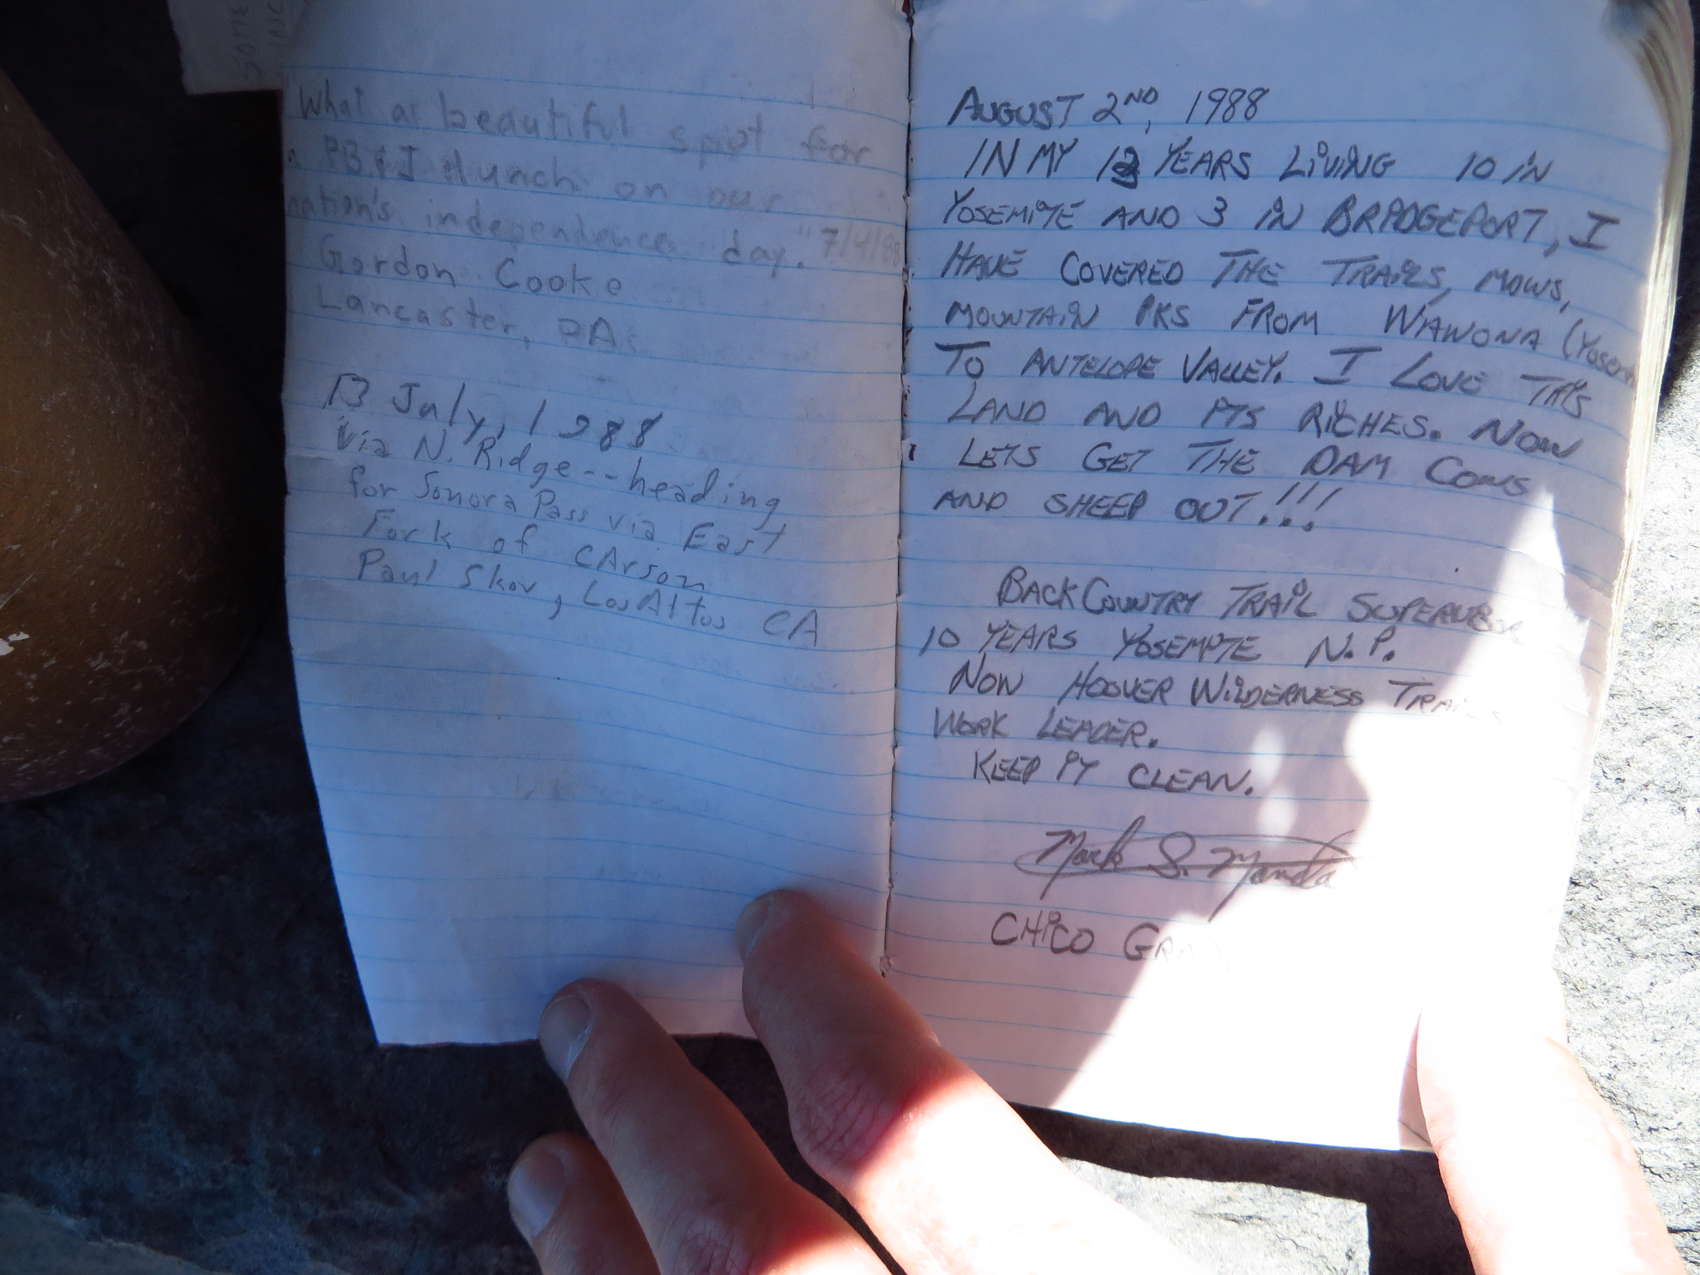 What a beautiful spot for
a PB&J lunch on our
nation's independence day." 7/4/88
Gordon Cooke
Lancaster, PA.
13 July, 1988
via N. Ridge--heading
for Sonora Pass via East
Fork of CArson
Paul Skov, Los Altos CA
AUGUST 2ND, 1988
IN MY 13 YEARS LIVING 10 IN
YOSEMITE AND 3 IN BRIDGEPORT, I
HAVE COVERED THE TRAILS, MOWS,
MOUNTAIN PKS FROM WAWONA (YOSEM
TO ANTELOPE VALLEY. I LOVE THIS
LAND AND ITS RICHES. NOW
LETS GET THE DAM COWS
AND SHEEP OUT!!!
BACKCOUNTRY TRAIL SUPERVISOR
10 YEARS YOSEMITE N.P.
NOW HOOVER WILDERNESS TRAILS
WORK LEADER.
KEEP IT CLEAN.
Mark S.
CHICO